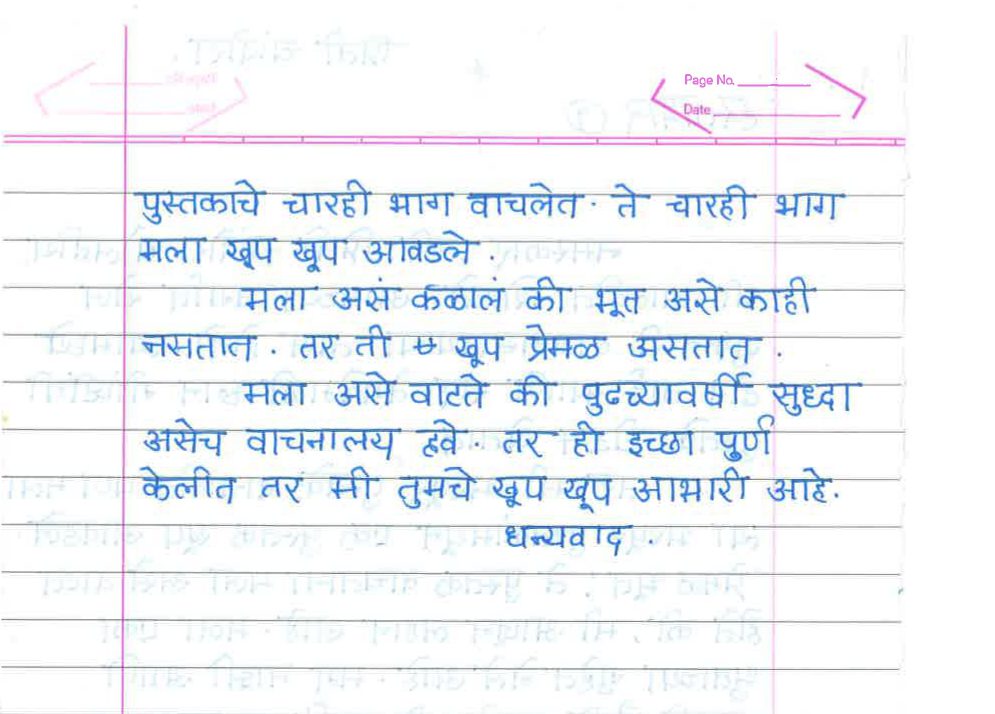 Page No.
Date
पुस्तकाचे चारही भाग वाचलेत. ते चारही भाग
मला खूप खूप आवडले.
मला असं कळालं की भूत असे काही
नसतात. तर ती खूप प्रेमळ असतात.
मला असे वाटते की पुढच्यावर्षी सुध्दा
असेच वाचनालय हवे. तर ही इच्छा पुर्ण
केलीत तर मी तुमचे खूप खूप आभारी आहे.
धन्यवाद.